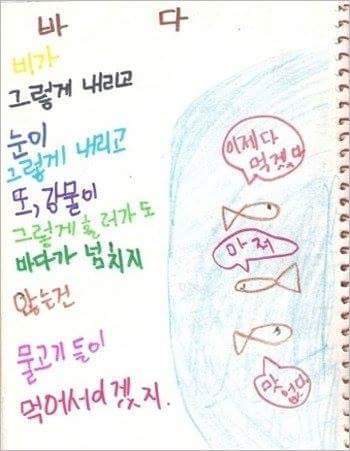 바 다
비가
그렇게 내리고
눈이
그렇게 내리고
또, 강물이
그렇게 흘러가도
바다가 넘치지
않는건
물고기들이
먹어서이겠지.
이제다
마저